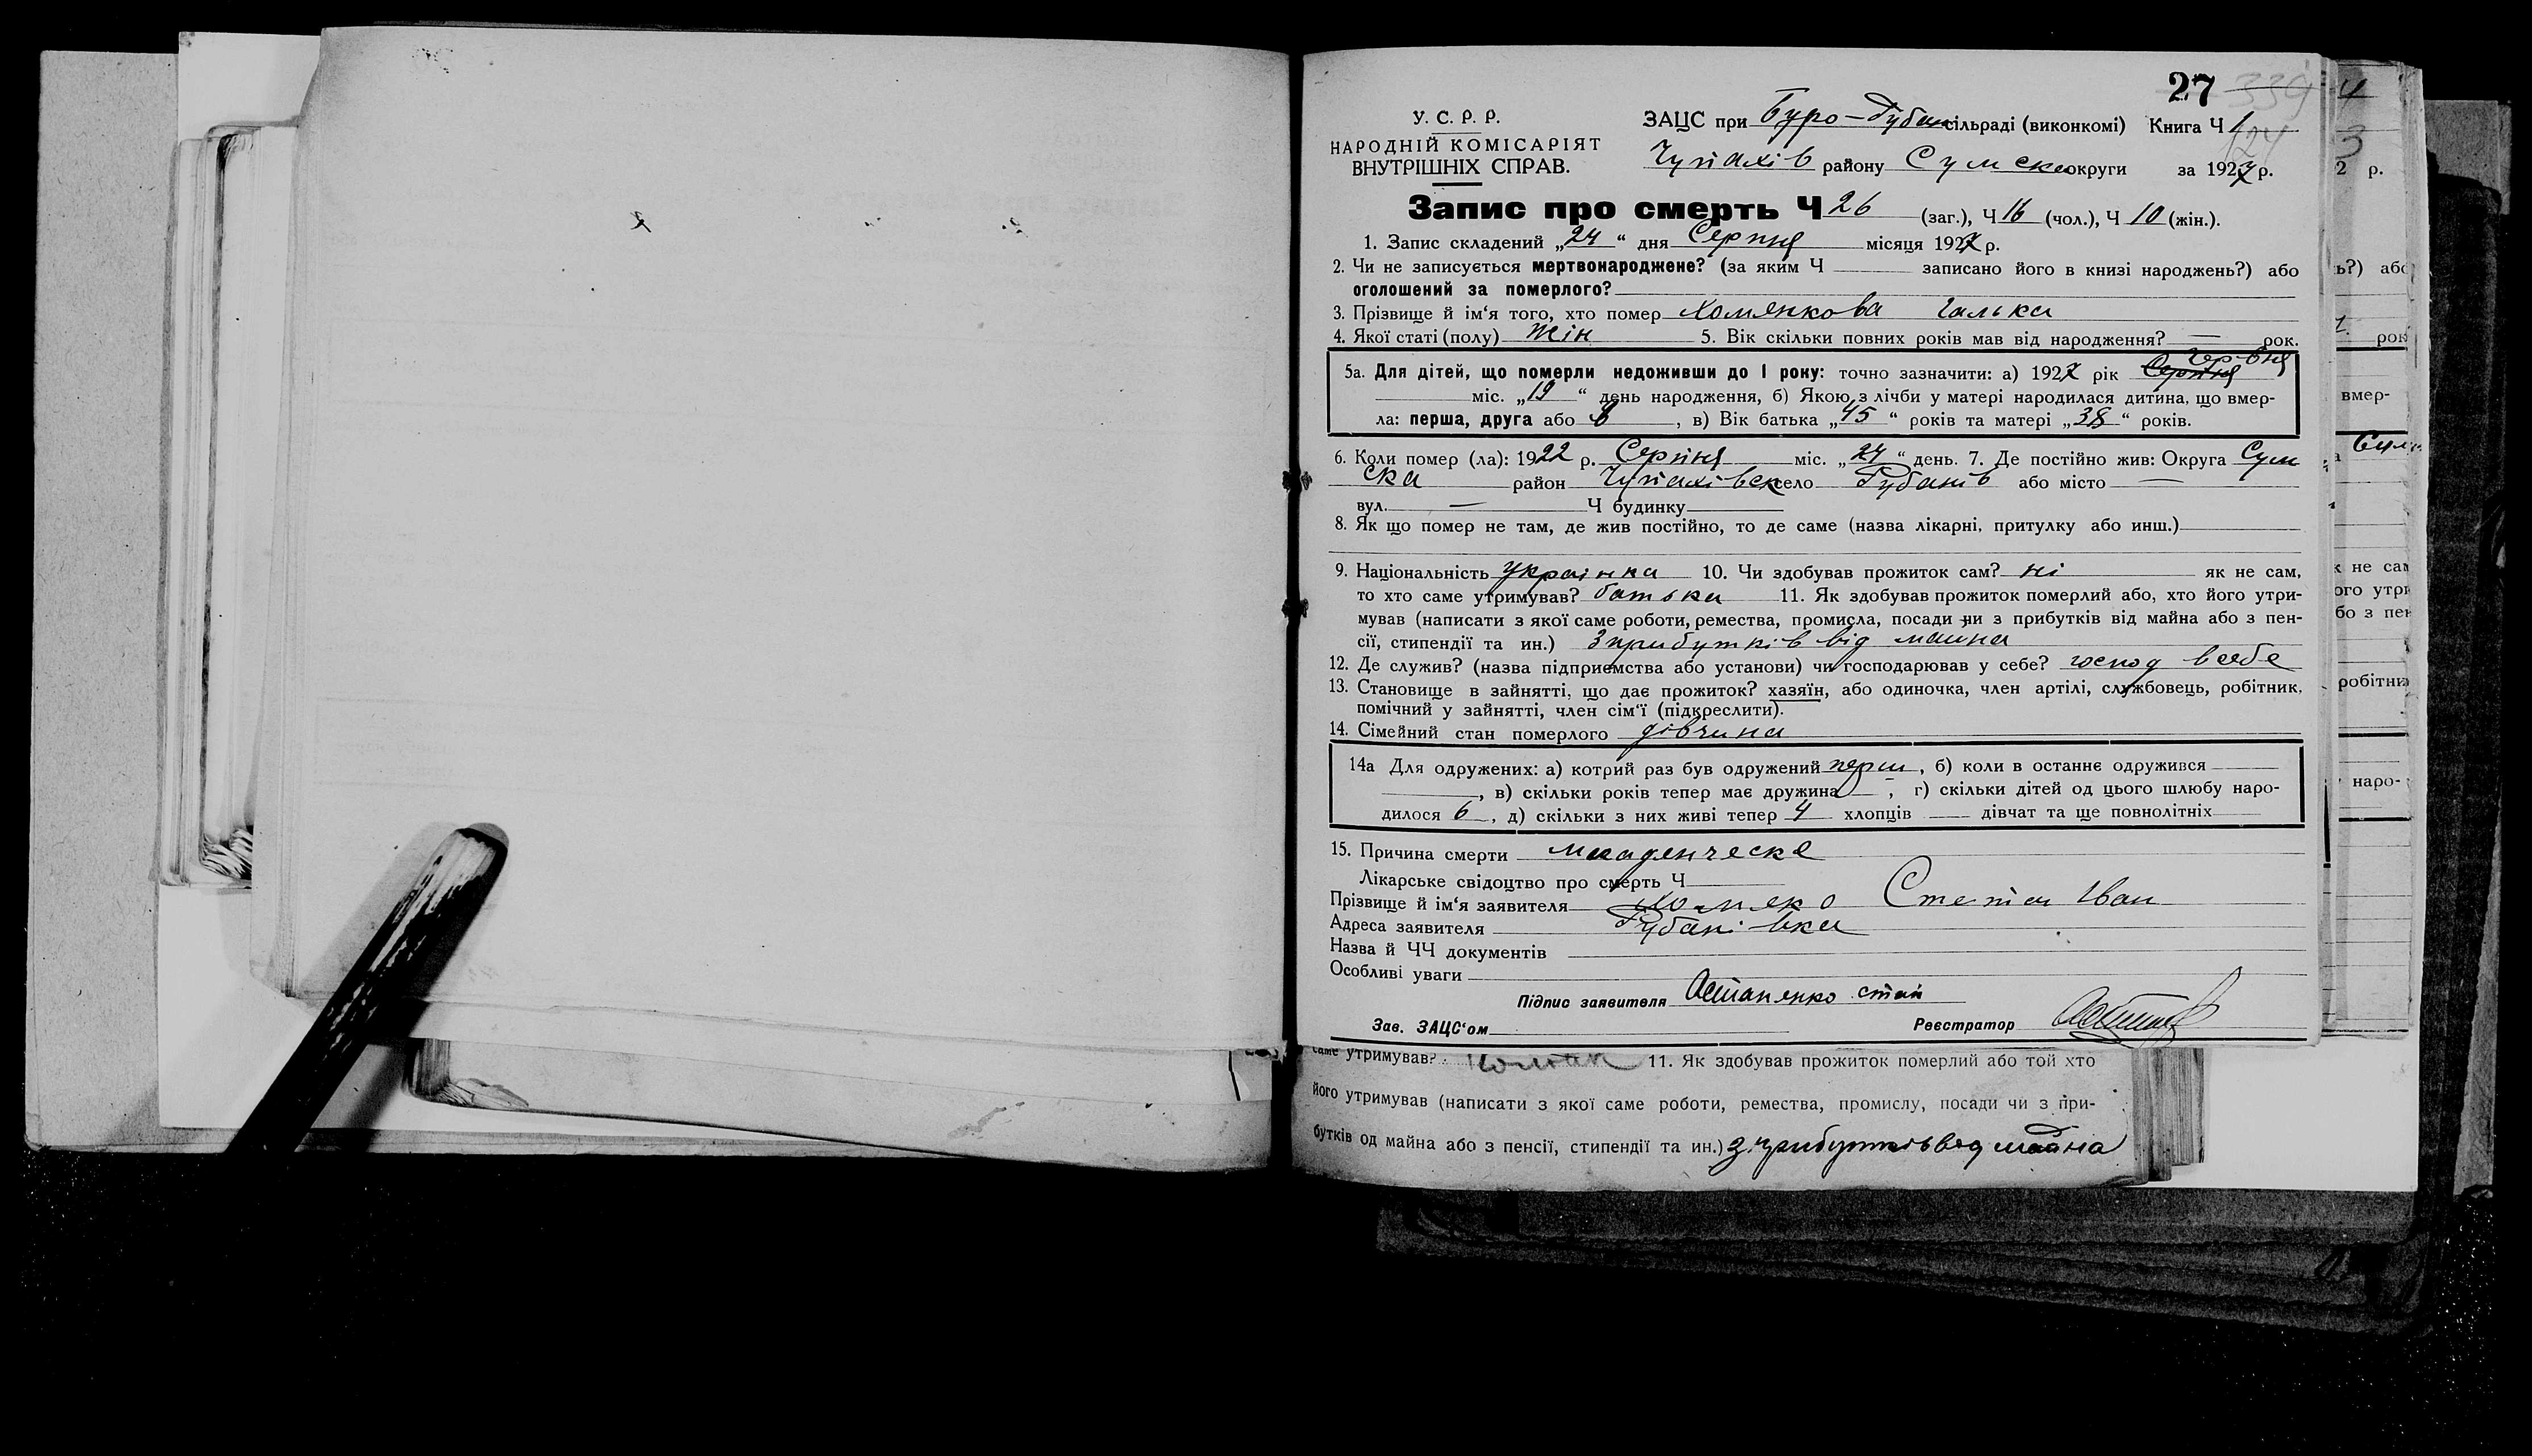 27 339
У. С. Р. Р.
НАРОДНІЙ КОМІСАРІЯТ
ВНУТРІШНІХ СПРАВ.
ЗАЦС при Буро-Рубан сільраді (виконкомі) Книга Ч 1
124
Чупахів району Сумской округи за 1927 р.
Запис про смерть Ч 26 (заг.), Ч 16 (чол.), Ч 10 (жін.).
1. Запис складений „24“ дня Серпня місяця 1927 р.
2. Чи не записується мертвонароджене? (за яким Ч записано його в книзі народжень?) або
оголошений за померлого?
3. Прізвище й ім‘я того, хто помер Хомякова Галька
4. Якої статі (полу) жін 5. Вік скільки повних років мав від народження? — рок.
5а. Для дітей, що померли недоживши до 1 року: точно зазначити: а) 1927 рік Серпня Червня
міс. „19“ день народження, б) Якою з лічби у матері народилася дитина, що вмер-
ла: перша, друга або 8, в) Вік батька „45“ років та матері „38“ років.
6. Коли помер (ла): 1922 р. Серпня міс. „24“ день. 7. Де постійно жив: Округа Сум
ска район Чупахівск село Рубанів або місто —
вул. — Ч будинку
8. Як що помер не там, де жив постійно, то де саме (назва лікарні, притулку або инш.)
9. Національність українка 10. Чи здобував прожиток сам? ні як не сам,
то хто саме утримував? батька 11. Як здобував прожиток померлий або, хто його утри-
мував (написати з якої саме роботи, ремества, промисла, посади чи з прибутків від майна або з пен-
сії, стипендії та ин.) З прибутків від маина
12. Де служив? (назва підприємства або установи) чи господарював у себе? господ в себе
13. Становище в зайнятті, що дає прожиток? хазяїн, або одиночка, член артілі, службовець, робітник,
помічний у зайнятті, член сім‘ї (підкреслити).
14. Сімейний стан померлого дівчина
14а Для одружених: а) котрий раз був одружений перш, б) коли в останнє одружився
, в) скільки років тепер має дружина —, г) скільки дітей од цього шлюбу наро-
дилося 6, д) скільки з них живі тепер 4 хлопців — дівчат та ще повнолітніх
15. Причина смерти младенческе
Лікарське свідоцтво про смерть Ч
Прізвище й ім‘я заявителя Хомяко Степа Іван
Адреса заявителя Рубанівка
Назва й ЧЧ документів
Особливі уваги
Підпис заявителя Остапенко степ
Зав. ЗАЦС‘ом Реєстратор
саме утримував? 11. Як здобував прожиток померлий або той хто
його утримував (написати з якої саме роботи, ремества, промислу, посади чи з при-
бутків од майна або з пенсії, стипендії та ин.) з прибутків від майна
4
3
2 р.
ь?) або
рок
вмер-
к не сам
ого утри
бо з пен
робітник
наро-